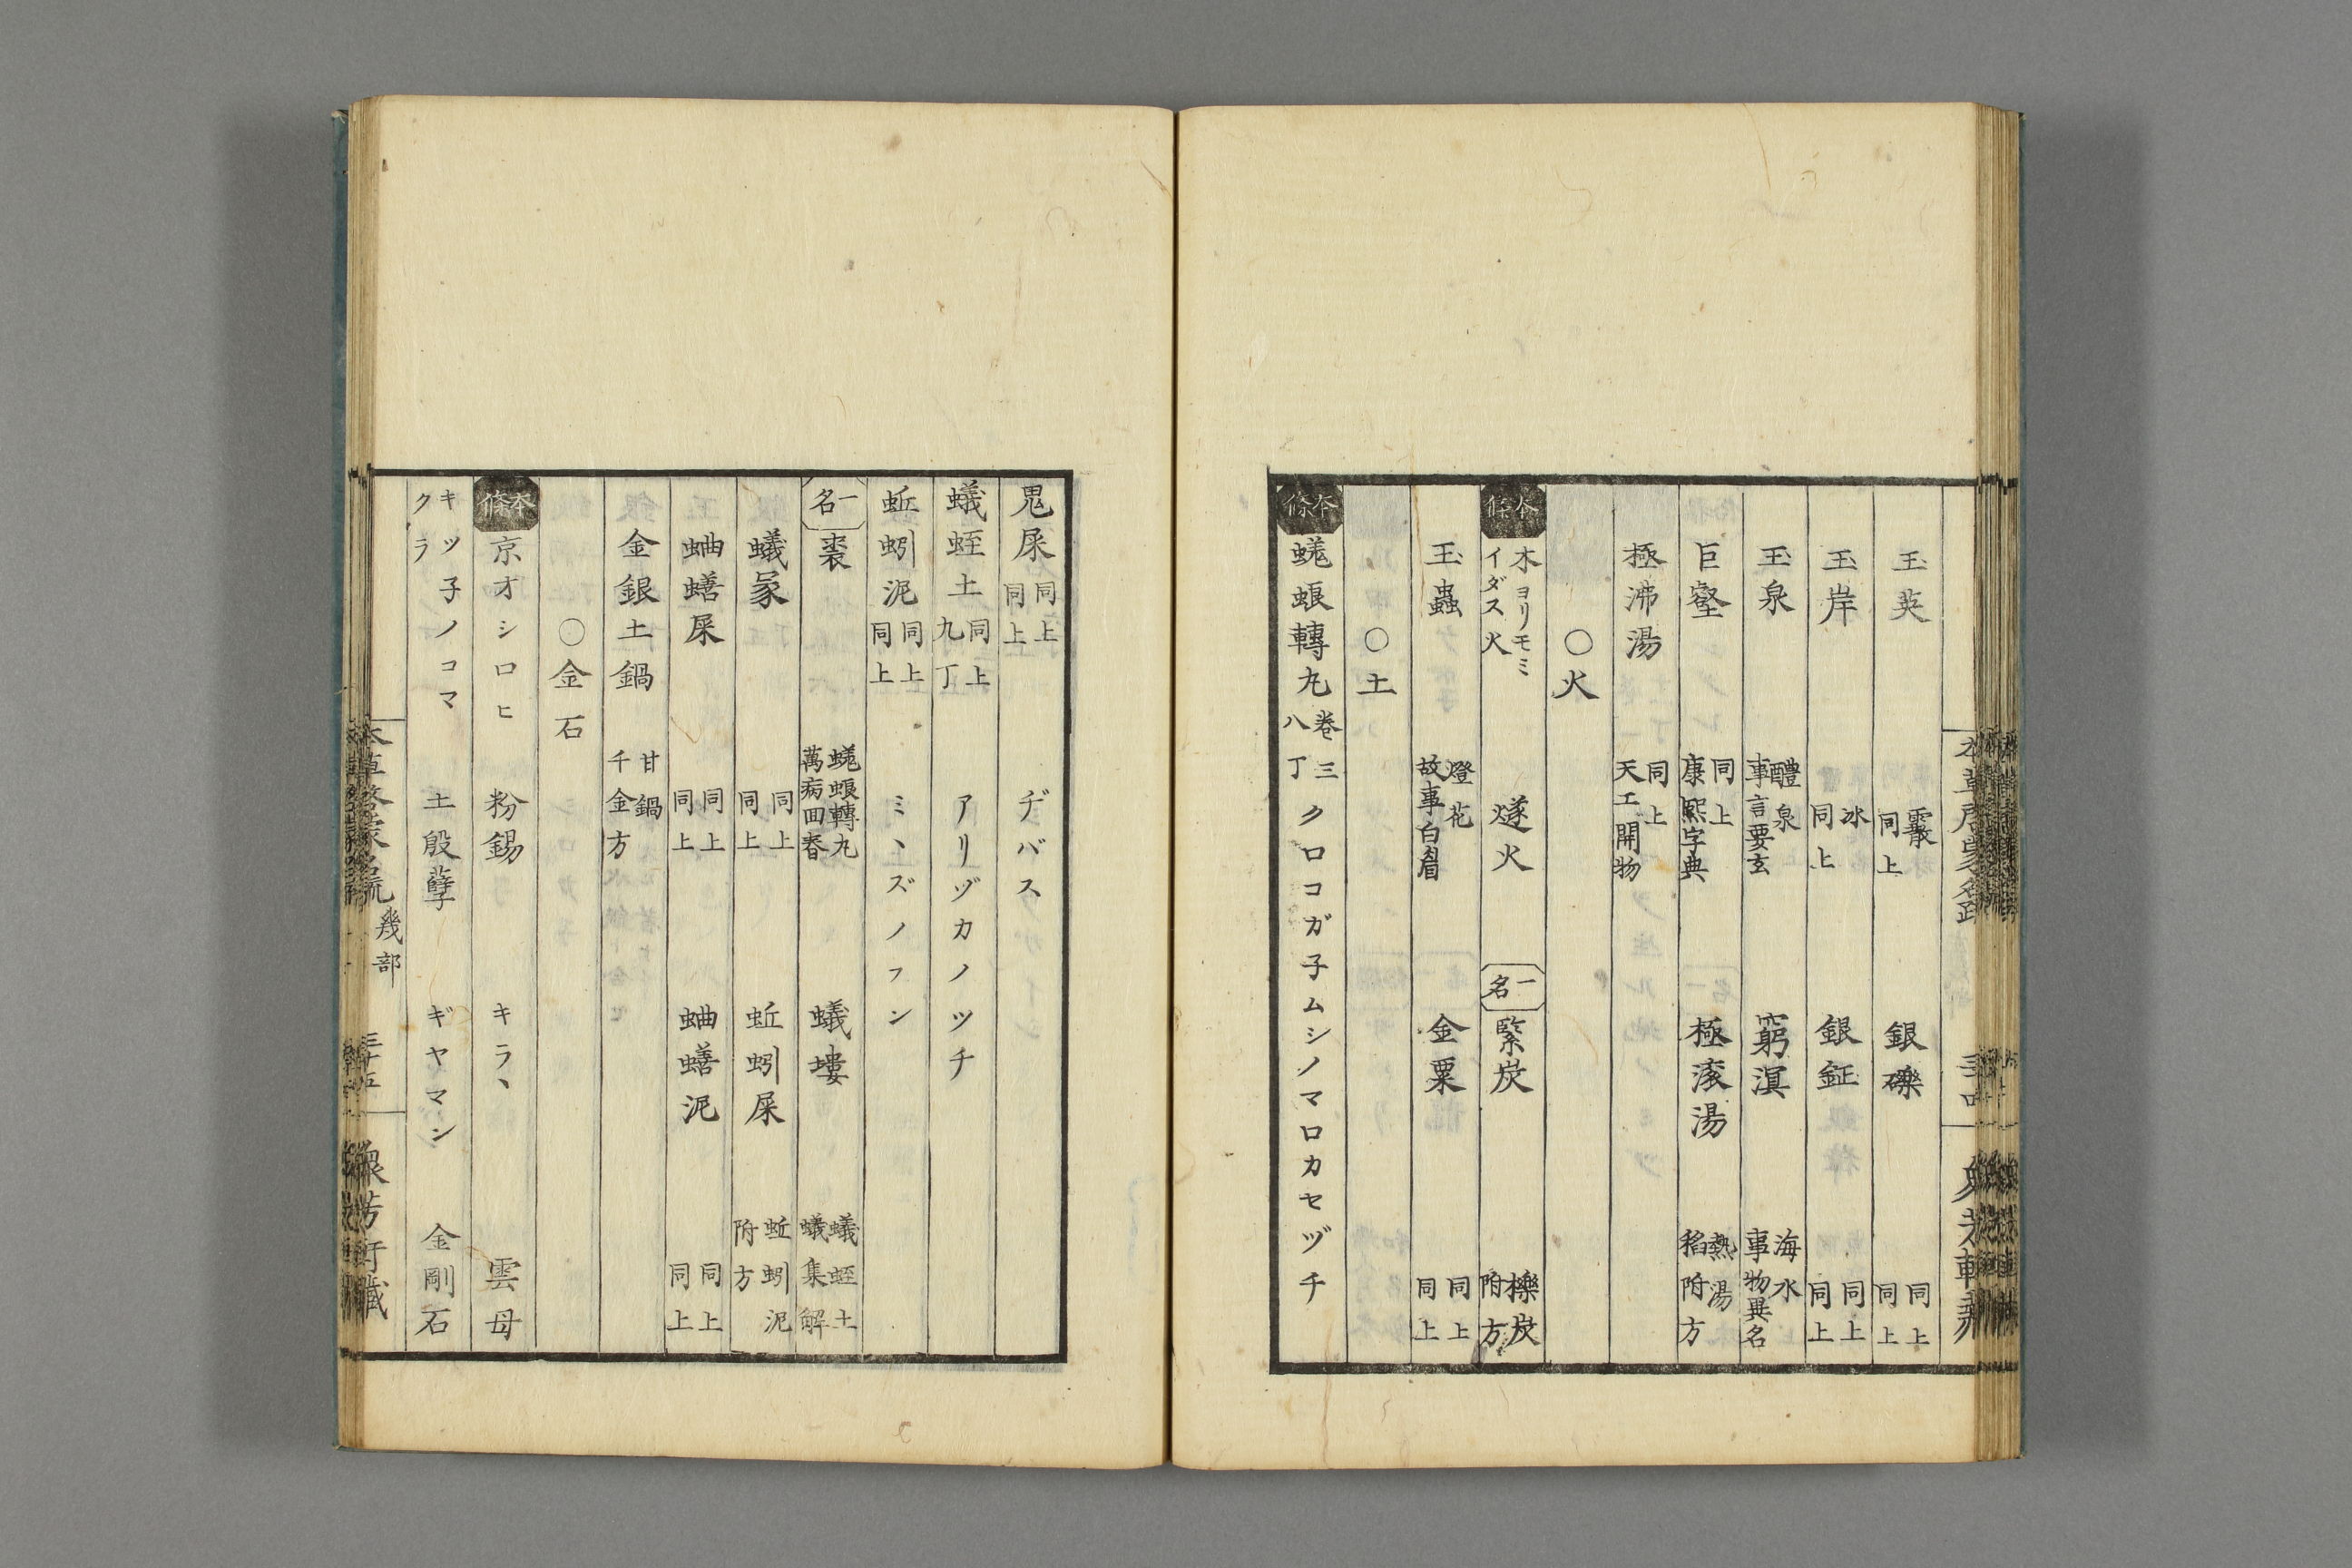 玉英 霰 同上 銀礫 同上 同上
玉岸 冰 同上 銀鉦 同上 同上
玉泉 醴泉 事言要玄 窮溟 海水 事物異名
巨壑 同上 康熙字典 極滚湯 熱湯 稻附方
極沸湯 同上 天工開物
○火
本條 木ヨリモミイダス火 燧火 一名 緊炭 櫟炭 附方
玉蟲 燈花 故事白眉 金粟 同上 同上
○土
本條 蜣蜋轉丸 卷三 八丁 クロコガ子ムシノマロカセヅチ
鬼屎 同上 同上 ヂバス
蟻蛭土 同上 九丁 アリヅカノツチ
蚯蚓泥 同上 同上 ミヽズノフン
一名 裘 蜣蜋轉丸 萬病回春 蟻塿 蟻蛭土 蟻集解
蟻冢 同上 同上 蚯蚓屎 蚯蚓泥 附方
蛐蟮屎 同上 同上 蛐蟮泥 同上 同上
金銀土鍋 甘鍋 千金方
○金石
本條 京オシロヒ 粉錫 キラヽ 雲母
キツ子ノコマクラ 土殷孽 ギヤマン 金剛石
本草啓蒙名疏 幾部 三十五 衆芳軒藏